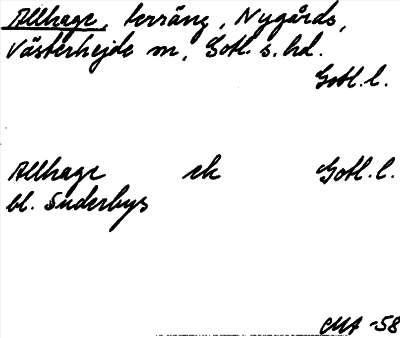 Allhage, terräng, Nygårds,
Västerhejde sn, Gotl. s. hd.
Gotl. l.
Allhage ek Gotl. l.
bl. Suderbys
CMA -58